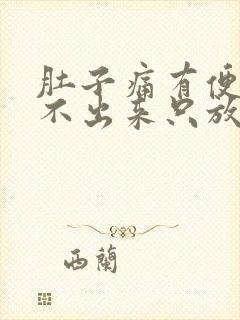 肚子痛有便
不出来只放
西蘭